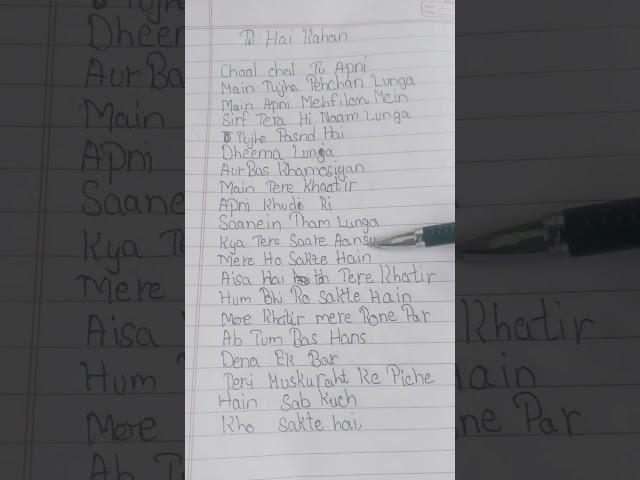 Tu Hai Kahan
Chaal chal Tu Apni
Main Tujhe Pehchan Lunga
Main Apni Mehfilon Mein
Sirf Tera Hi Naam Lunga
Tujhe Pasnd Hai
Dheema Lunja
Aur Bas Khamosigan
Main Tere Khaatir
Apni Khudi Ki
Saanein Tham Lunga
Kya Tere Saare Aansu
Mere Ho Sakte Hain
Aisa Hai to Tere Khatir
Hum Bhi Ro Sakte Hain
Mere Khatir mere Rone Par
Ab Tum Bas Hans
Dena Ek Bar
Teri Muskuraht Ke Piche
Hain Sab Kuch
Kho sakte hai,